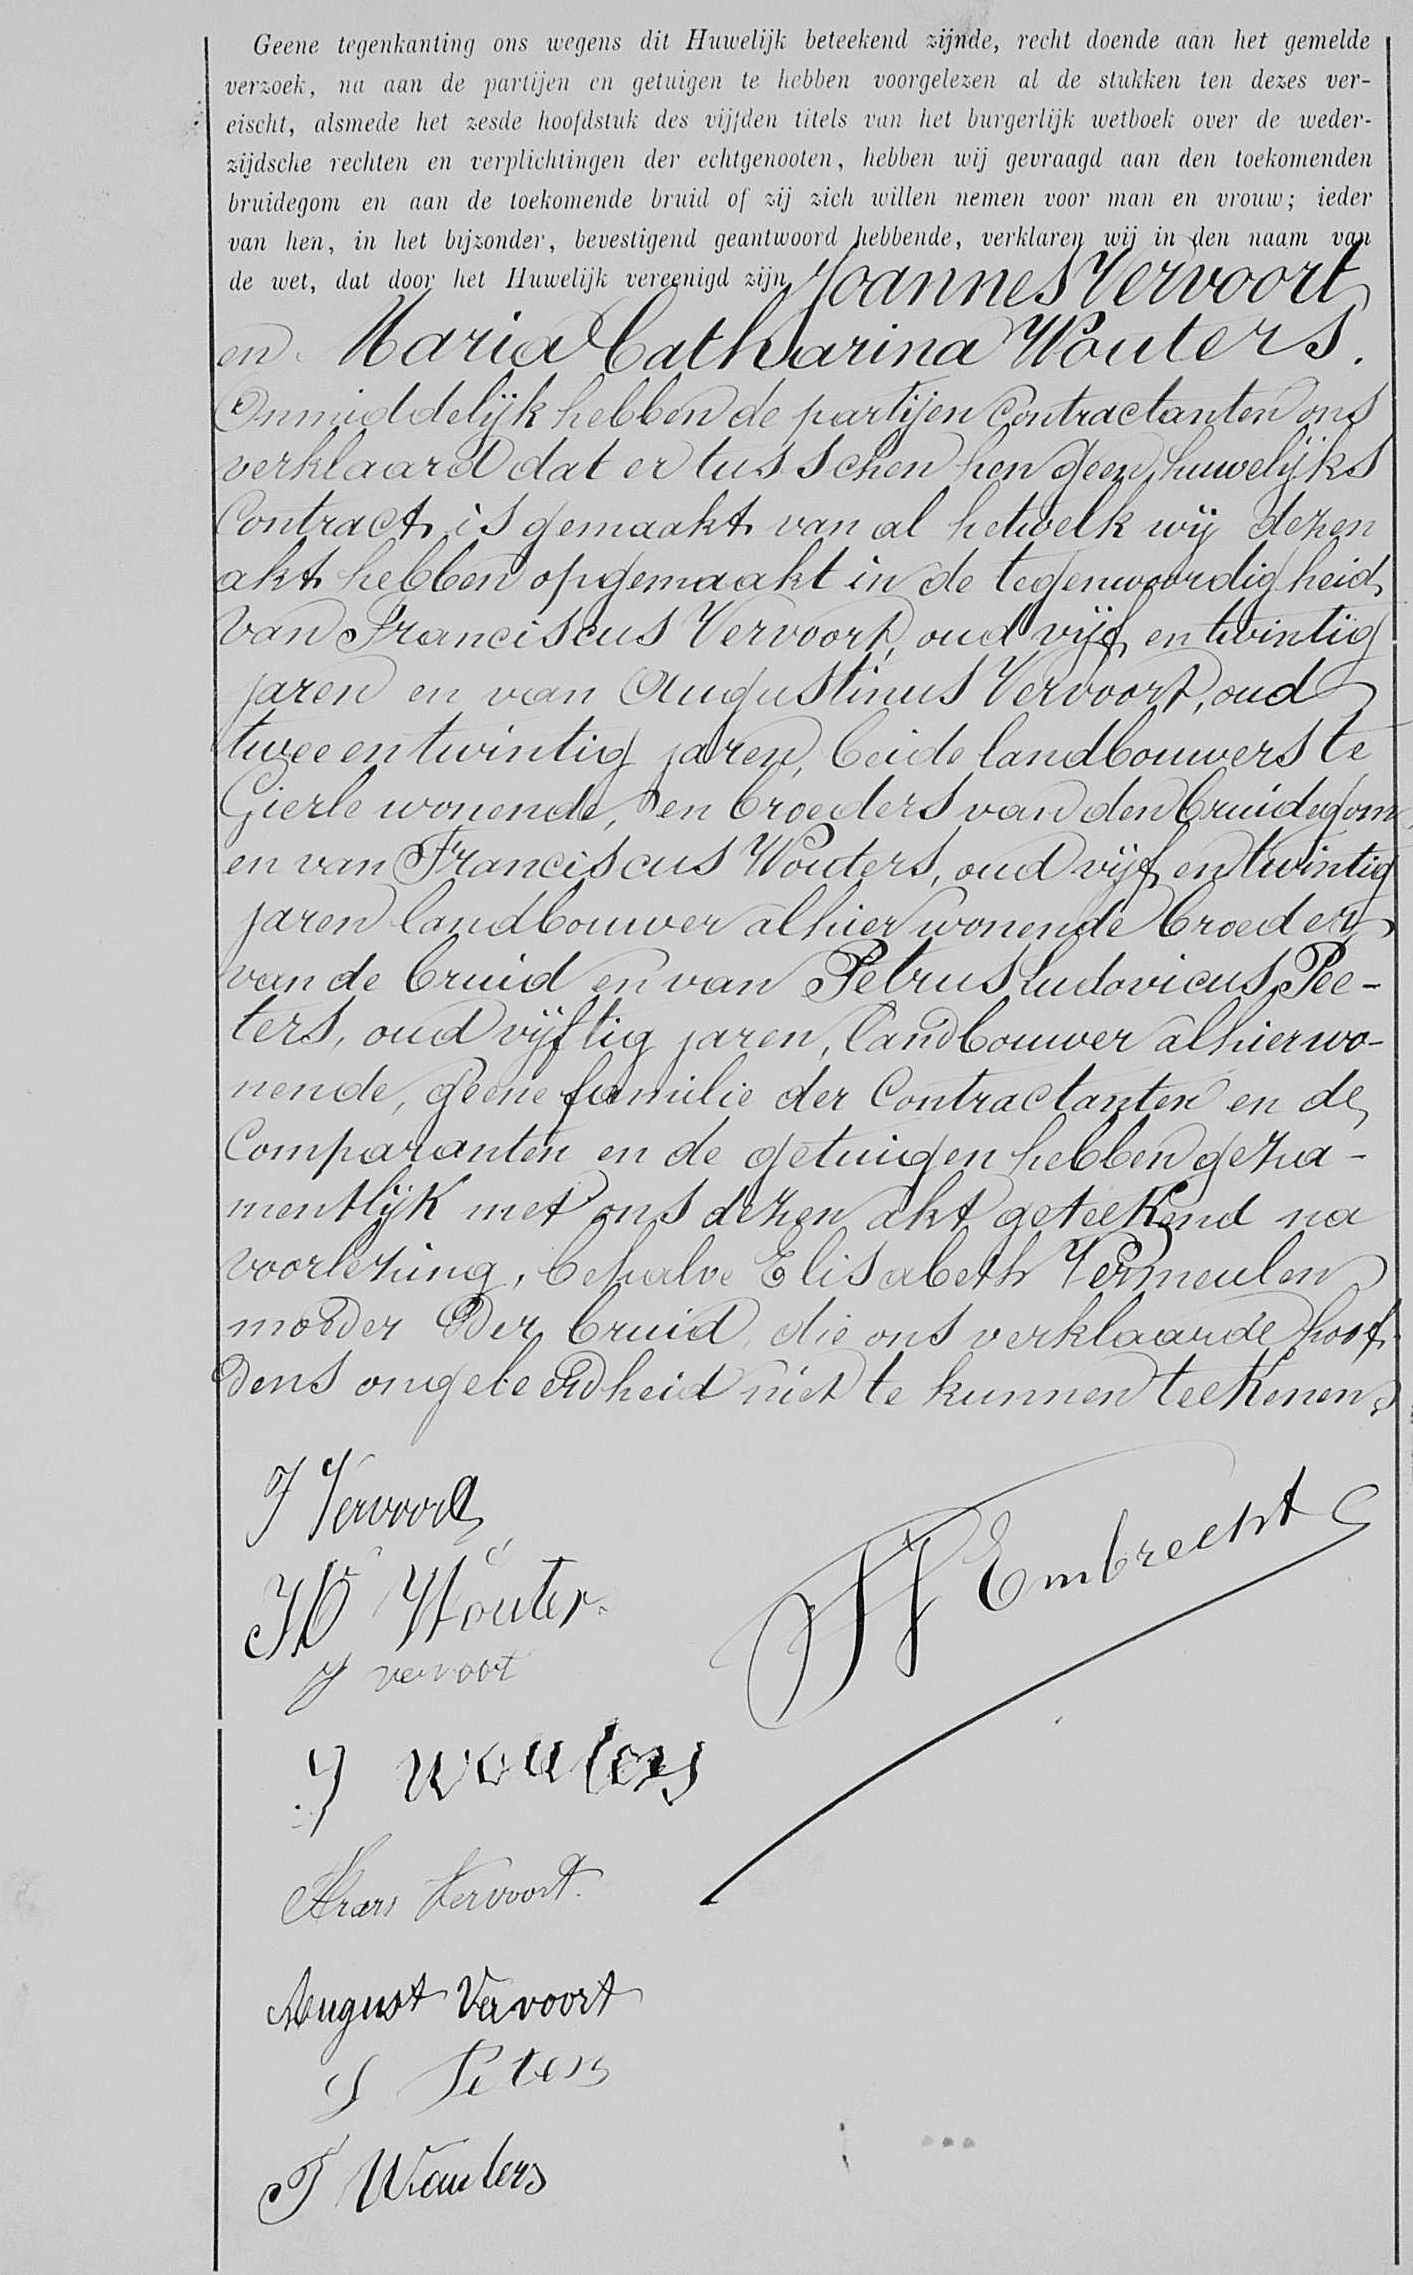 Geene tegenkanting ons wegens dit Huwelijk beteekend zijnde, recht doende aan het gemelde
verzoek, na aan de partijen en getuigen te hebben voorgelezen al de stukken ten dezes ver-
eischt, alsmede het zesde hoofdstuk des vijfden titels van het burgerlijk wetboek over de weder-
zijdsche rechten en verplichtingen der echtgenooten, hebben wij gevraagd aan den toekomenden
bruidegom en aan de toekomende bruid of zij zich willen nemen voor man en vrouw; ieder
van hen, in het bijzonder, bevestigend geantwoord hebbende, verklaren wij in den naam van
de wet, dat door het Huwelijk vereenigd zijn Joannes Vervoort
en Maria Catharina Wouters.
Onmiddelijk hebben de partijen contractanten ons
verklaard dat er tusschen hen geen huwelijks
Contract is gemaakt van al hetwelk wij dezen
akt hebben opgemaakt in de tegenwoordigheid
van Franciscus Vervoort, oud vijf en twintig
jaren en van Augustinus Vervoort, oud
twee en twintig jaren, beide landbouwers te
Gierle wonende, en broeders van den bruidegom,
en van Franciscus Wouters, oud vijf en twintig
jaren landbouwer alhier wonende broeder
van de bruid en van Petrus Ludovicus Pee-
ters, oud vijftig jaren, landbouwer alhier wo-
nende, geene familie der Contractanten en de
Comparanten en de getuigen hebben geza-
mentlijk met ons dezen akt geteekend na
voorlezing, behalve Elisabeth Vermeulen
moeder der bruid, die ons verklaarde hoof-
dens ongeleerdheid niet te kunnen teekenen.
J Vervoort
Wouter
J vervoort
Embrecht
J wouters
Frans Vervoort.
August Vervoort
Peters
F Wouters